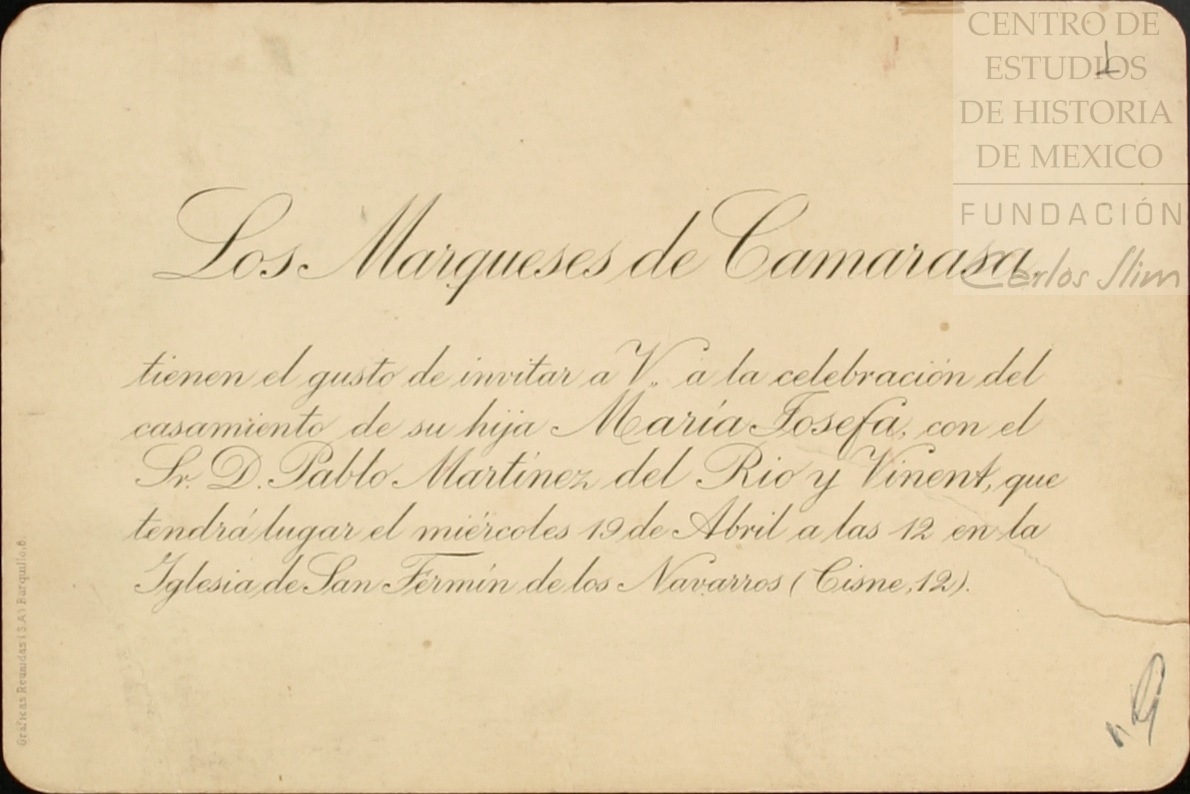 CENTRO DE
ESTUDIOS
DE HISTORIA
DE MEXICO
FUNDACIÓN
Carlos Slim
Los Marqueses de Camarasa
tienen el gusto de invitar a V. a la celebración del
casamiento de su hija María Josefa, con el
Sr. D. Pablo Martínez del Rio y Vinent, que
tendrá lugar el miércoles 19 de Abril a las 12 en la
Iglesia de San Fermín de los Navarros (Cisne, 12).
Gráficas Reunidas (S.A) Barquillo, 8.